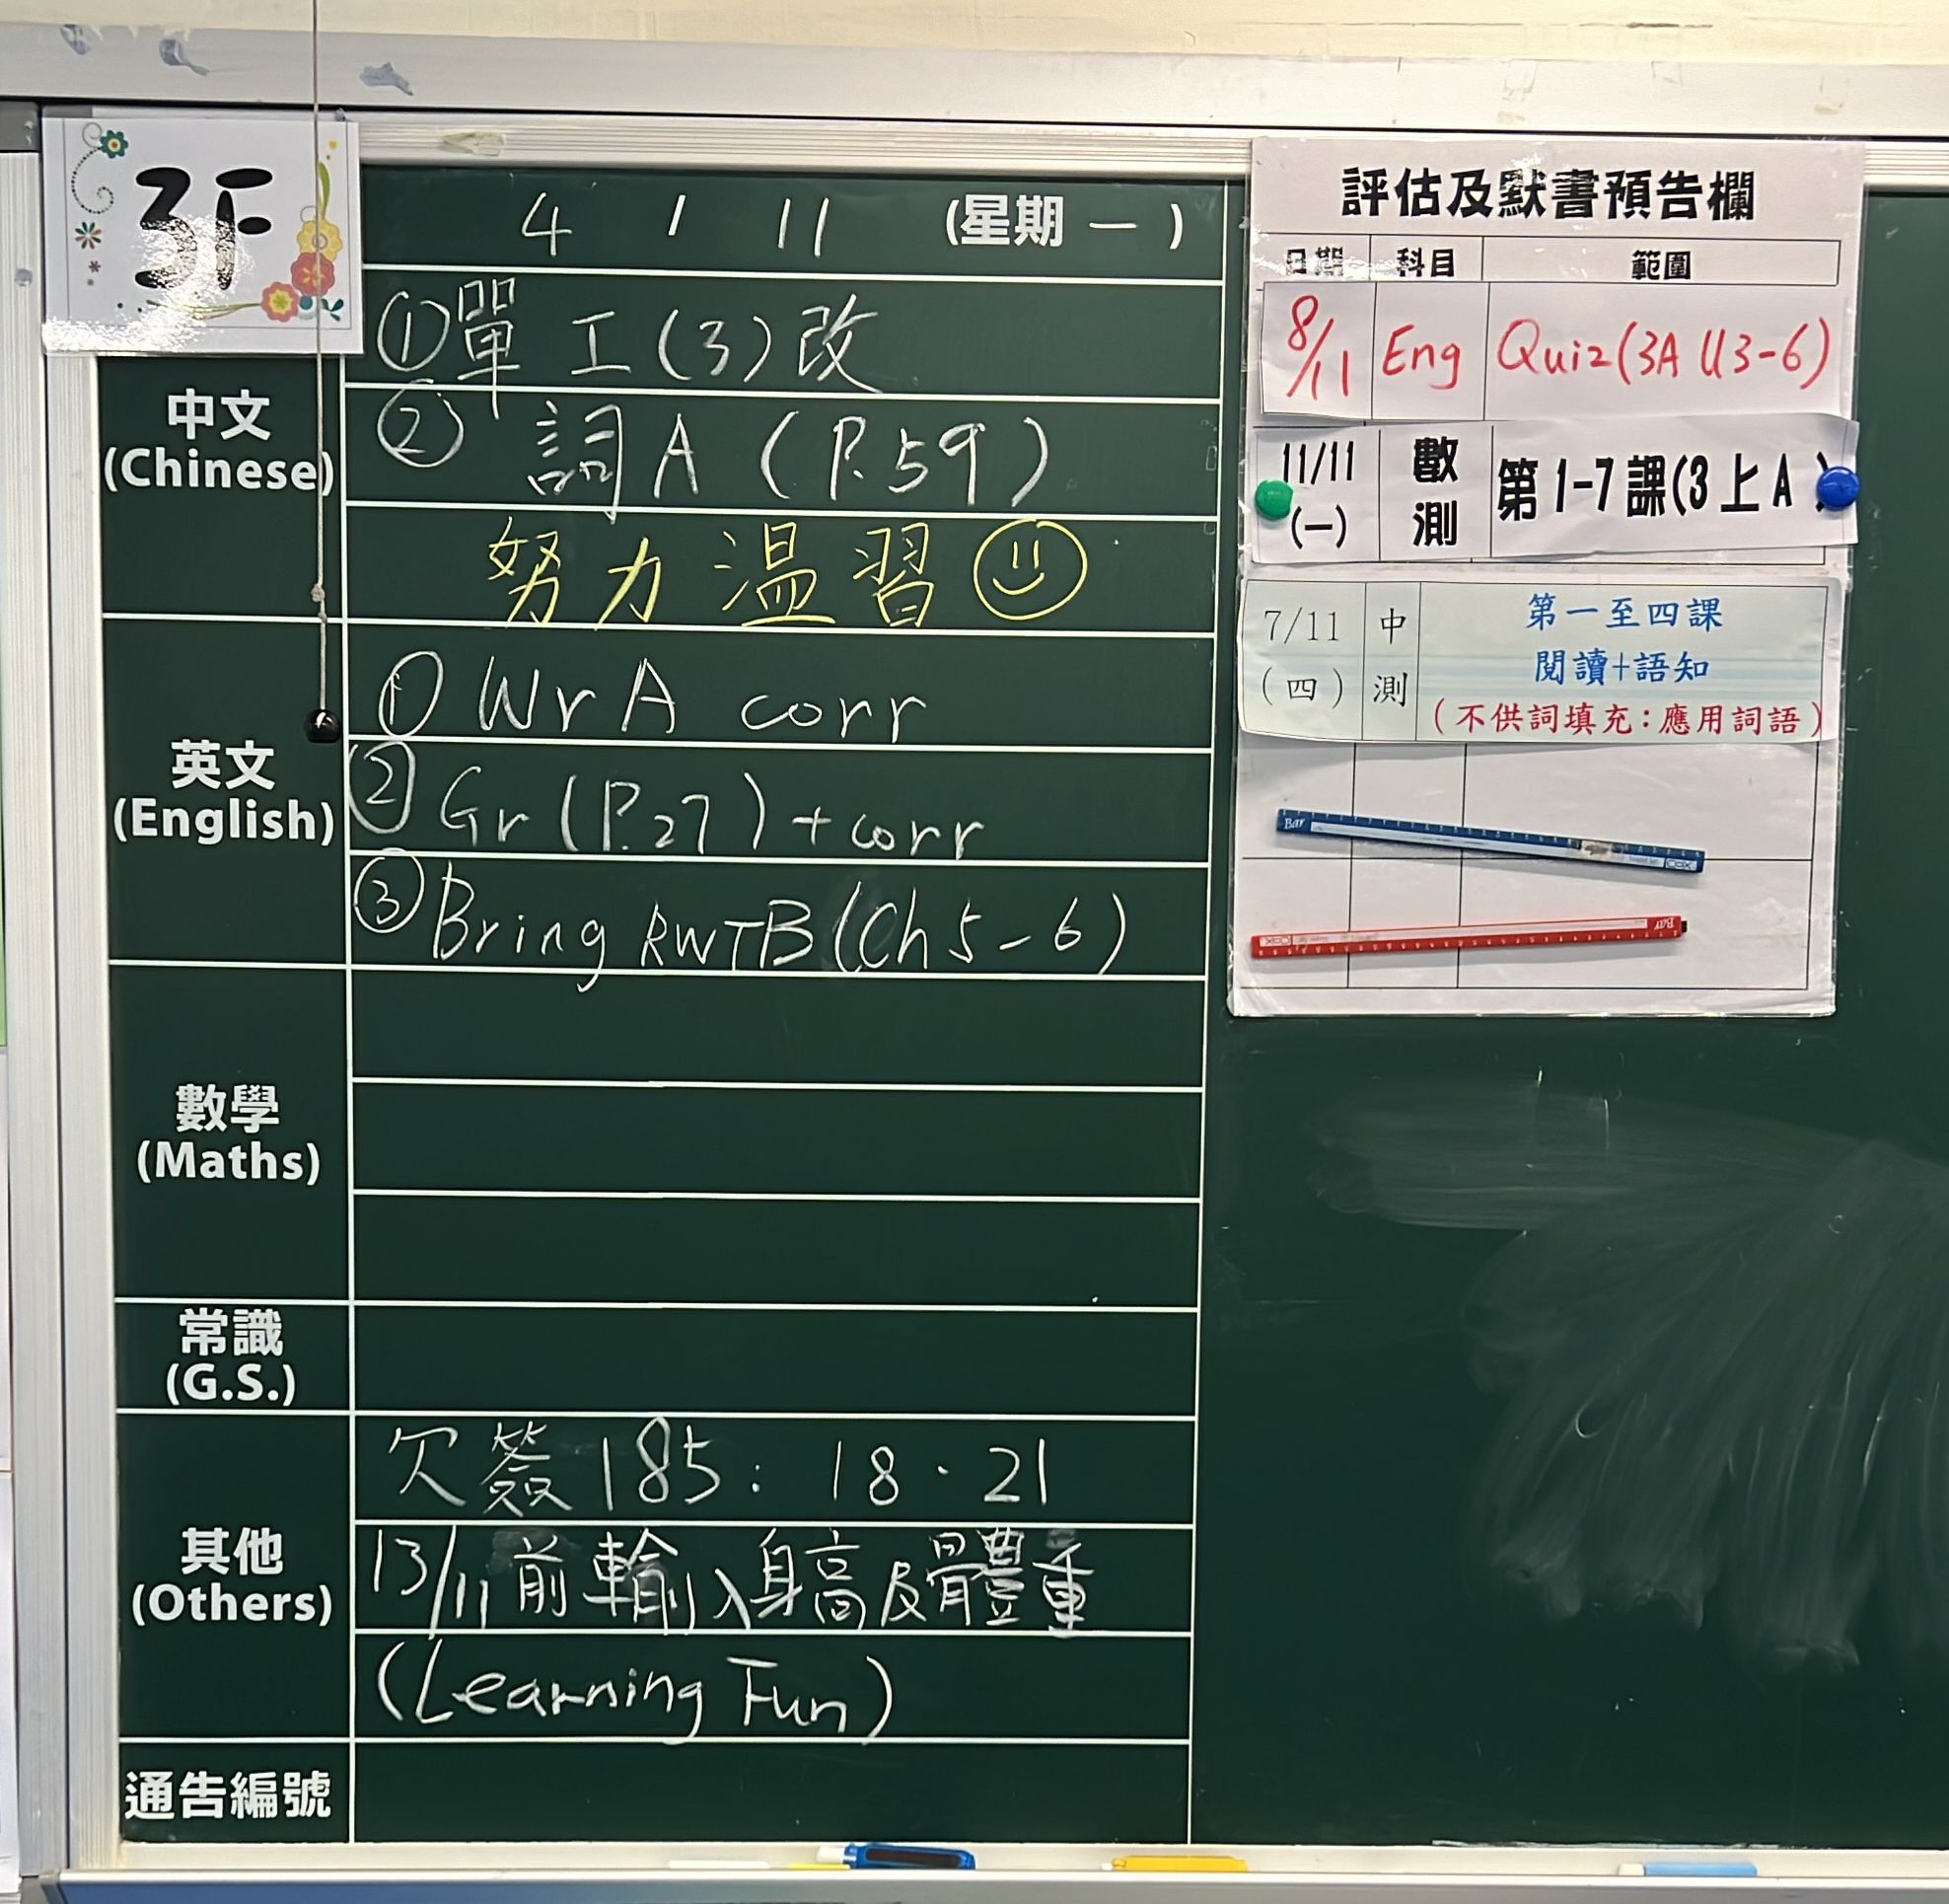 3F
4 / 11 (星期一)
中文
(Chinese)
①單工(3)改
② 詞A (P.59)
努力温習
英文
(English)
① Wr A corr
② Gr (P.27) + corr
③ Bring RWTB (Ch 5-6)
數學
(Maths)
常識
(G.S.)
其他
(Others)
欠簽185: 18 · 21
13/11前輸入身高及體重
(Learning Fun)
通告編號
評估及默書預告欄
日期 科目 範圍
8/11 Eng Quiz(3A U3-6)
11/11
(一)
數
測
第1-7課(3上A)
7/11
(四)
中
測
第一至四課
閱讀+語知
(不供詞填充:應用詞語)
Bar
COX
Bar
COX